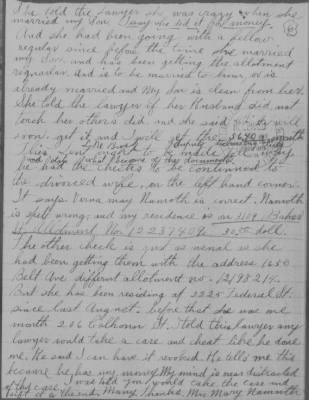 She told the lawyer she was crazy when she
married my son. Says she did it for money.
And she had been going with a fellow
regular since before the time she married
my son, and has been getting the allotment
regular. And is to be married to him, or is
already married and my son is clean from her.
She told the lawyer if her husband did not
her others did, and she said
soon get it and I will get the $640 a month
This
and of what I become of my documents
he had the checks to be continued to
the divorced wife, on the left hand corner.
It says Verna may Namroth is correct. Namroth
is spelt wrong, and my residence is on 1109 Baker
St. Allotment No. 12237409 30.00 doll.
The other check is just as usual as she
had been getting them with the address 1650
Belt Ave different allotment no. 12198214.
But she has been residing at 2225 Federal St.
since last August. before that she was one
month 206 Calhoun St. I told this lawyer any
lawyer would take a case and cheat like he done
me. He said I can have it revoked. He tells me this
because he has my money. My mind is near distracted
of this case. I was told you would take the case and
sift it to the end. Many Thanks, Mrs Mary Namroth